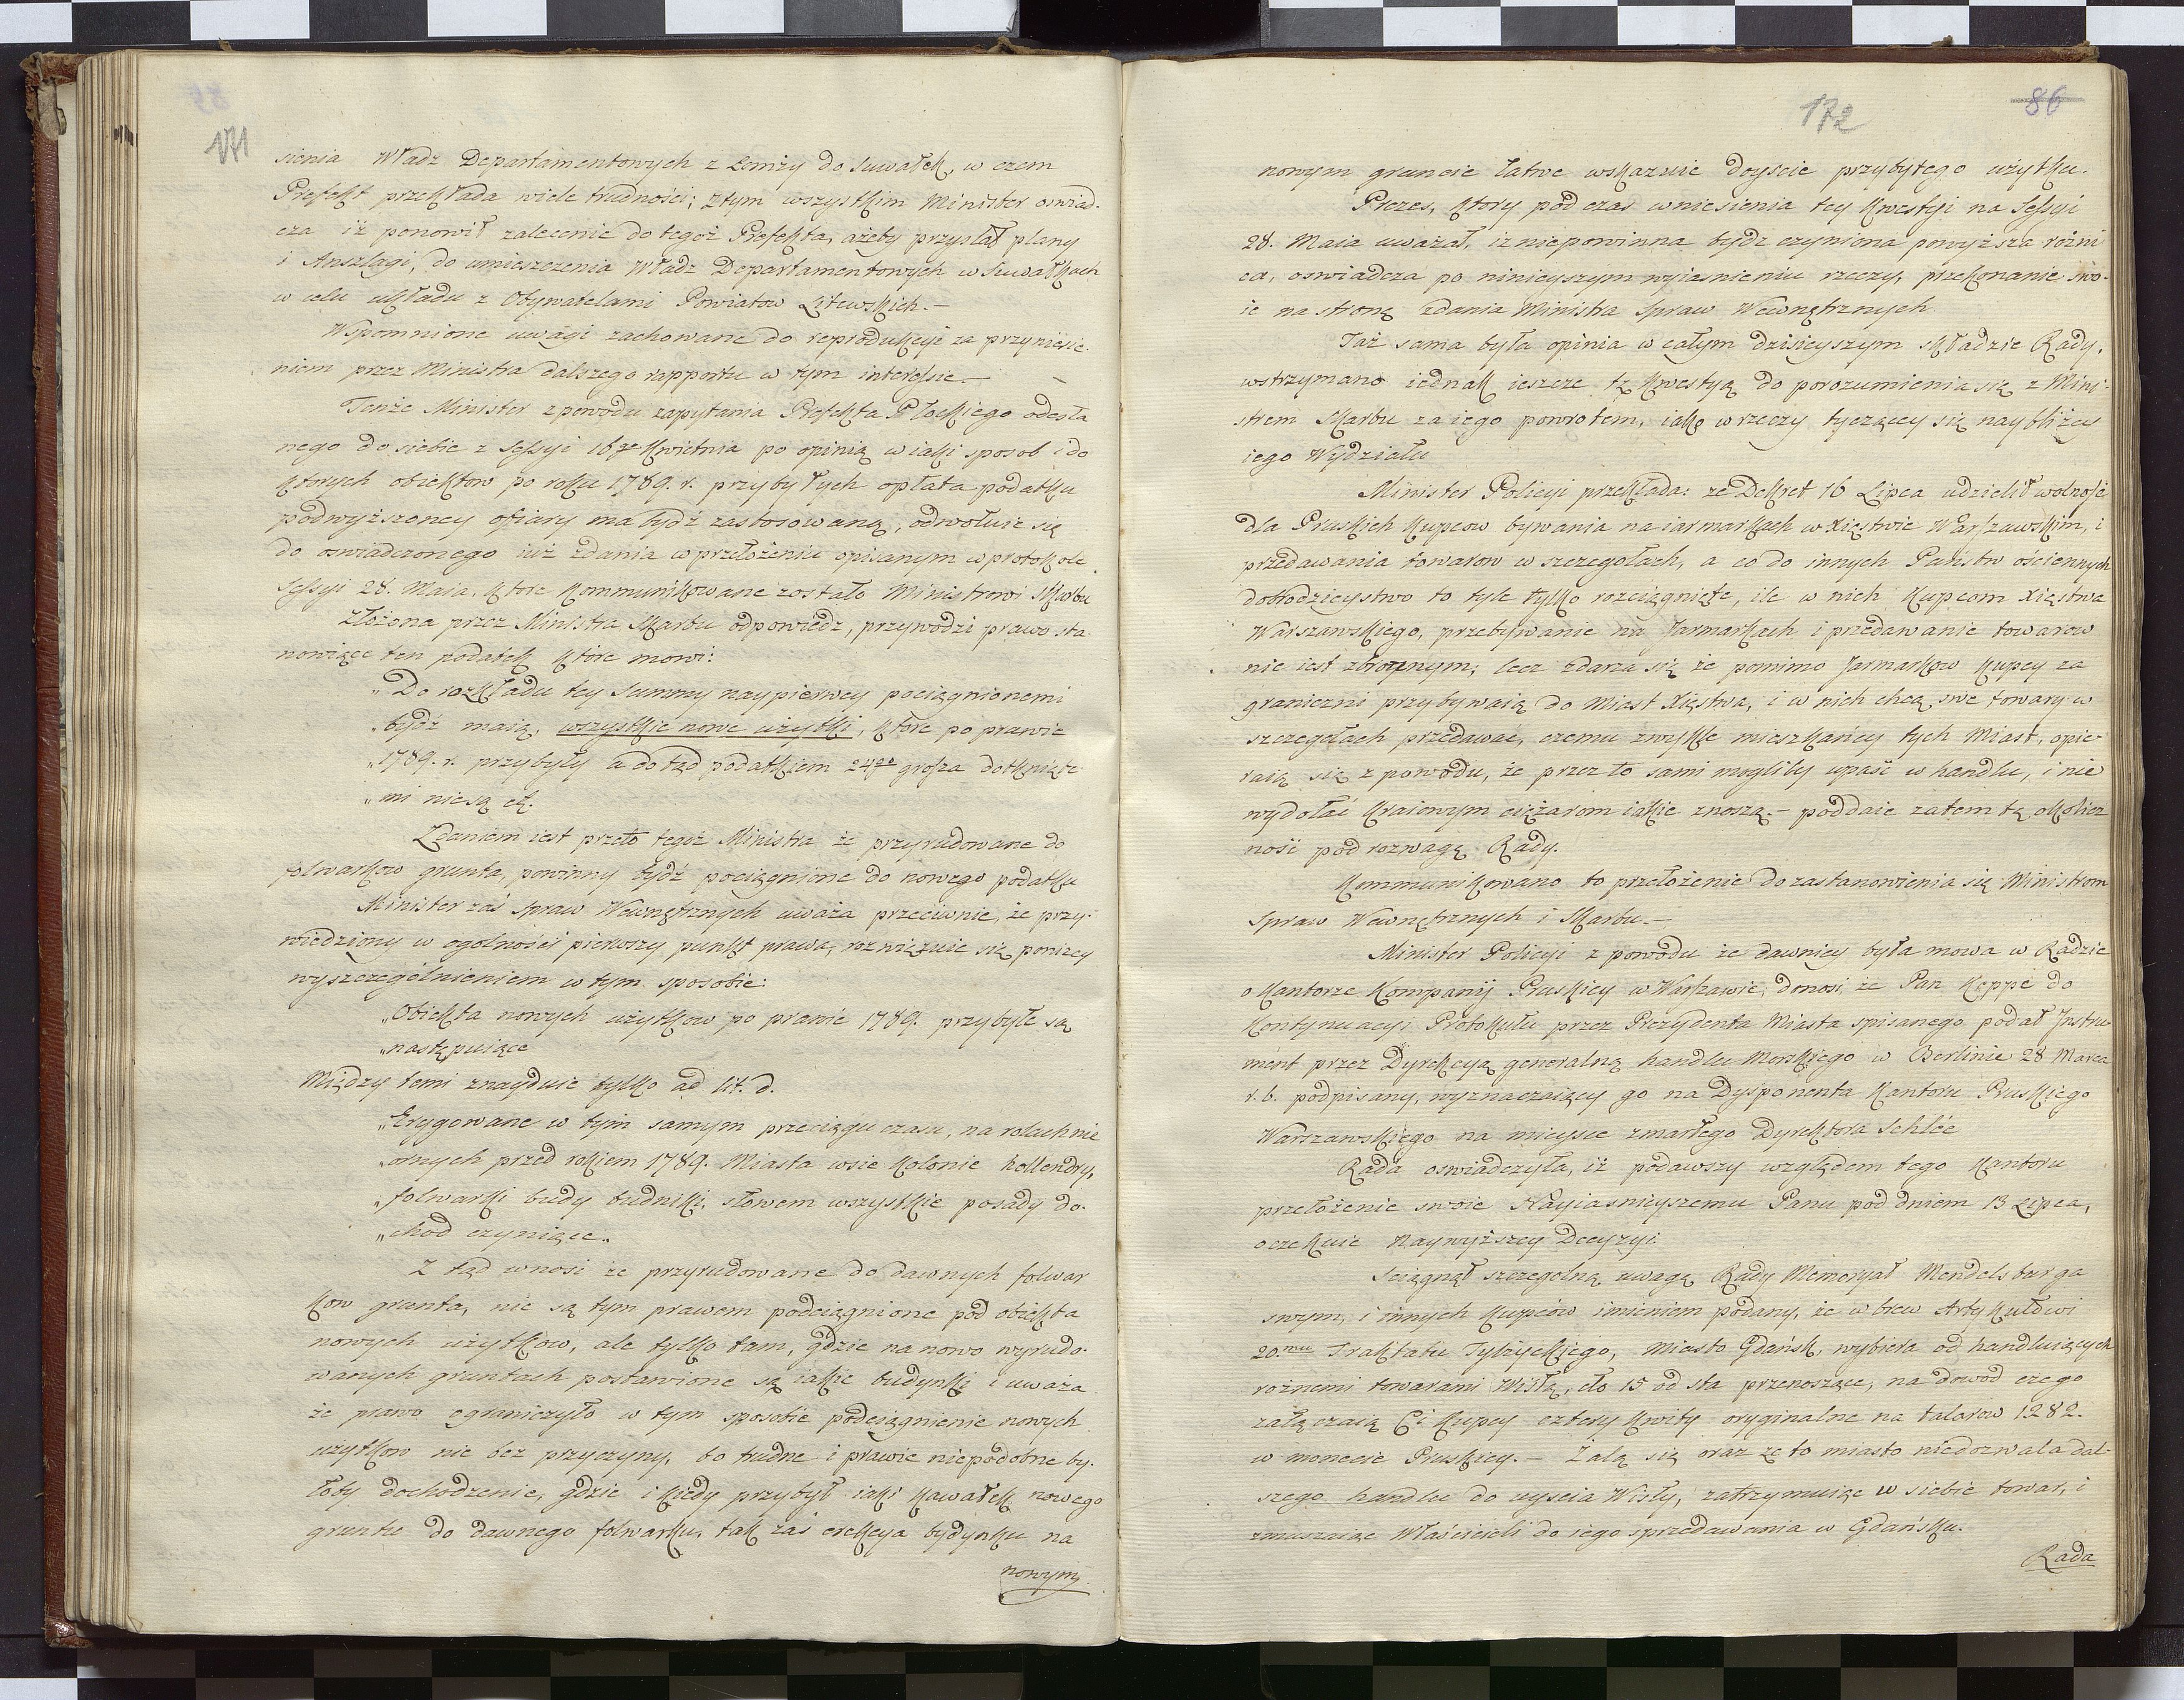 171
sienia Władz Departamentowych z Łomży do Suwałek, w czem
Prefekt przekłada wiele trudności; z tym wszystkim Minister oswiad-
cza iż ponowił zalecenie do tegoż Prefekta, ażeby przysłał plany
i Anszlagi, do umieszczenia Władz Departamentowych w Suwałkach
w celu układu z Obywatelami Powiatow Litewskich.—
Wspomnione uwagi zachowane do reprodukcyi za przyniesie-
niem przez Ministra dalszego rapportu w tym interessie.—
Tenże Minister z powodu zapytania Prefekta Płockiego odesła
nego do siebie z Sessyi 16go Kwietnia po opinią w iaki sposob i do
ktorych obiektow po roku 1789. r. przybyłych opłata podatku
podwyższoney ofiary ma bydź zastosowaną, odwołuie się
do oswiadczonego iuż zdania w przełożeniu opisanym w protokole
Sessyi 28. Maia, ktore kommunikowane zostało Ministrowi Skarbu
Złożona przez Ministra Skarbu odpowiedz, przywodzi prawo sta
nowiące ten podatek ktore mowi:
„Do rozkładu tey Summy naypierwey pociągnionemi
„bydź maią, wszystkie nowe użytki, ktore po prawie
„1789. r. przybyły a dotąd podatkiem 24go grosza dotknięte
„mi nie są etc.
Zdaniem iest przeto tegoż Ministra że przyrudowane do
folwarkow grunta, powinny bydź pociągnione do nowego podatku
Minister zaś Spraw Wewnętrznych uważa przeciwnie, że przy-
wiedziony w ogolności pierwszy punkt prawa, rozwięzuie się poniżey
wyszczególnieniem w tym sposobie:
„Obiekta nowych użytkow po prawie 1789. przybyłe są
„następuiące
Między temi znayduie tylko ad lit. d.
„Erygowane w tym samym przeciągu czasu, na rolach nie
„ornych przed rokiem 1789. Miasta wsie Kolonie hollendry,
„folwarki budy budniki, słowem wszystkie posady do-
„chod czyniące„
Z tąd wnosi że przyrudowane do dawnych folwar
kow grunta, nie są tym prawem podciągnione pod obiekta
nowych użytkow, ale tylko tam, gdzie na nowo wyrudo-
wanych gruntach postawione są iakie budynki i uważa
że prawo ograniczyło w tym sposobie podciągnienie nowych
użytkow nie bez przyczyny, bo trudne i prawie niepodobne by-
łoby dochodzenie, gdzie i kiedy przybył iaki kawałek nowego
gruntu do dawnego folwarku, tak zaś erekcya bydynku na
nowym
172
86
nowym gruncie łatwe wskazuie doyscie przybyłego użytku.
Prezes, ktory podczas wniesienia tey kwestyi na Sessyi
28. Maia uważał, iż niepowinna bydz czyniona powyższa rożni
ca, oswiadcza po ninieyszym wyiasnieniu rzeczy, przekonanie swo-
ie na stronę zdania Ministra Spraw Wewnętrznych
Taż sama była opinia w całym dzisieyszym składzie Rady,
wstrzymano iednak ieszcze tę kwestyą do porozumienia się z Mini-
strem Skarbu za iego powrotem, iako w rzeczy tyczącey się naybliżey
iego Wydziału
Minister Policyi przekłada: że Dekret 16 Lipca udzielił wolność
dla Pruskich Kupcow bywania na iarmarkach w Xięstwie Warszawskim, i
przedawania towarow w szczegołach, a co do innych Państw ościennych
dobrodzieystwo to tyle tylko rozciągnięte, ile w nich Kupcom Xięstwa
Warszawskiego, przebywanie na Jarmarkach i przedawanie towarow
nie iest zbronnym; lecz zdarza się że pomimo Jarmarkow Kupcy za
graniczni przybywaią do Miast Xięstwa, i w nich chcą swe towary w
szczegołach przedawać, czemu zwykle mieszkańcy tych Miast, opie-
raią się z powodu, że przez to sami mogliby upaść w handlu, i nie
wydołać Kraiowym ciężarom iakie znoszą.— poddaie zatem tę okolicz
ność pod rozwagę Rady.
Kommunikowano to przełożenie do zastanowienia się Ministrom
Spraw Wewnętrznych i Skarbu.—
Minister Policyi z powodu że dawniey była mowa w Radzie
o Kantorze Kompanij Pruskiey w Warszawie, donosi że Pan Keppe do
Kontynuacyi Protokułu przez Prezydenta Miasta spisanego podał Instru-
ment przez Dyrekcyą generalną handlu Morskiego w Berlinie 28 Marca
r. b. podpisany, wyznaczaiący go na Dysponenta Kantoru Pruskiego
Warszawskiego na mieysce zmarłego Dyrektora Schlée
Rada oswiadczyła, iż podawszy względem tego Kantoru
przełożenie swoie Nayiasnieyszemu Panu pod dniem 13 Lipca,
oczekuie Naywyższey Decyzyi.
Sciągnął szczegolną uwagę Rady Memoryał Mendelsburga
swym, i innych Kupców imieniem podany, że w brew Artykułowi
20.mu Traktatu Tylżyckiego, Miasto Gdańsk, wybiera od handluiących
rożnemi towarami Wisłą, cło 15 od sta przenoszące, na dowod czego
załączaią Ci Kupcy cztery kwity oryginalne na talarow 1282.
w monecie Pruskiey.— Żalą się oraz że to miasto niedozwala dal-
szego handlu do uyscia Wisły, zatrzymuiąc w siebie towar, i
zmuszaiąc Właścicieli do iego sprzedawania w Gdańsku.
Rada